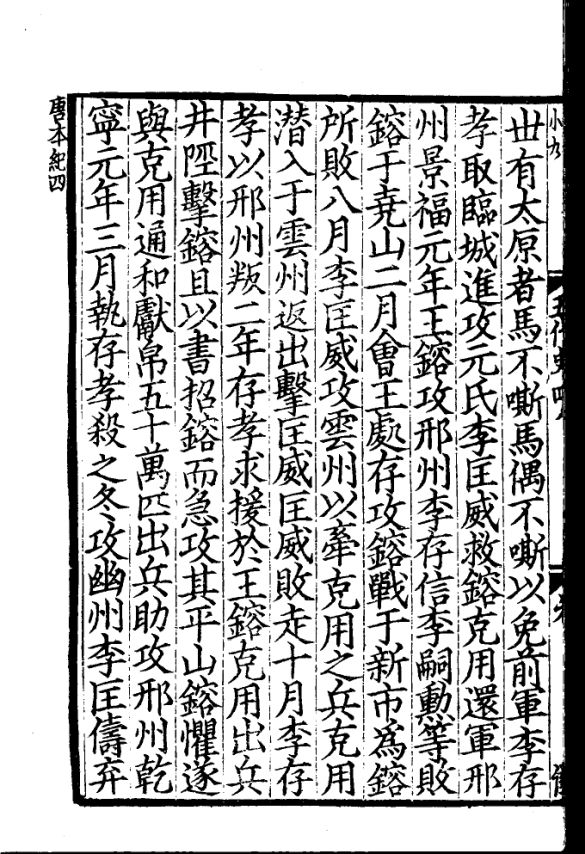 丗有太原者馬不嘶馬偶不嘶以免前軍李存
孝取臨城進攻元氏李匡威救鎔克用還軍邢
州景福元年王鎔攻邢州李存信李嗣勲等敗
鎔于堯山二月會王處存攻鎔戰于新市爲鎔
所敗八月李匡威攻雲州以牽克用之兵克用
潜入于雲州返出擊匡威匡威敗走十月李存
孝以邢州叛二年存孝求援於王鎔克用出兵
井陘擊鎔且以書招鎔而急攻其平山鎔懼遂
與克用通和獻帛五十萬匹出兵助攻邢州乾
寧元年三月執存孝殺之冬攻幽州李匡儔弃
唐本紀四